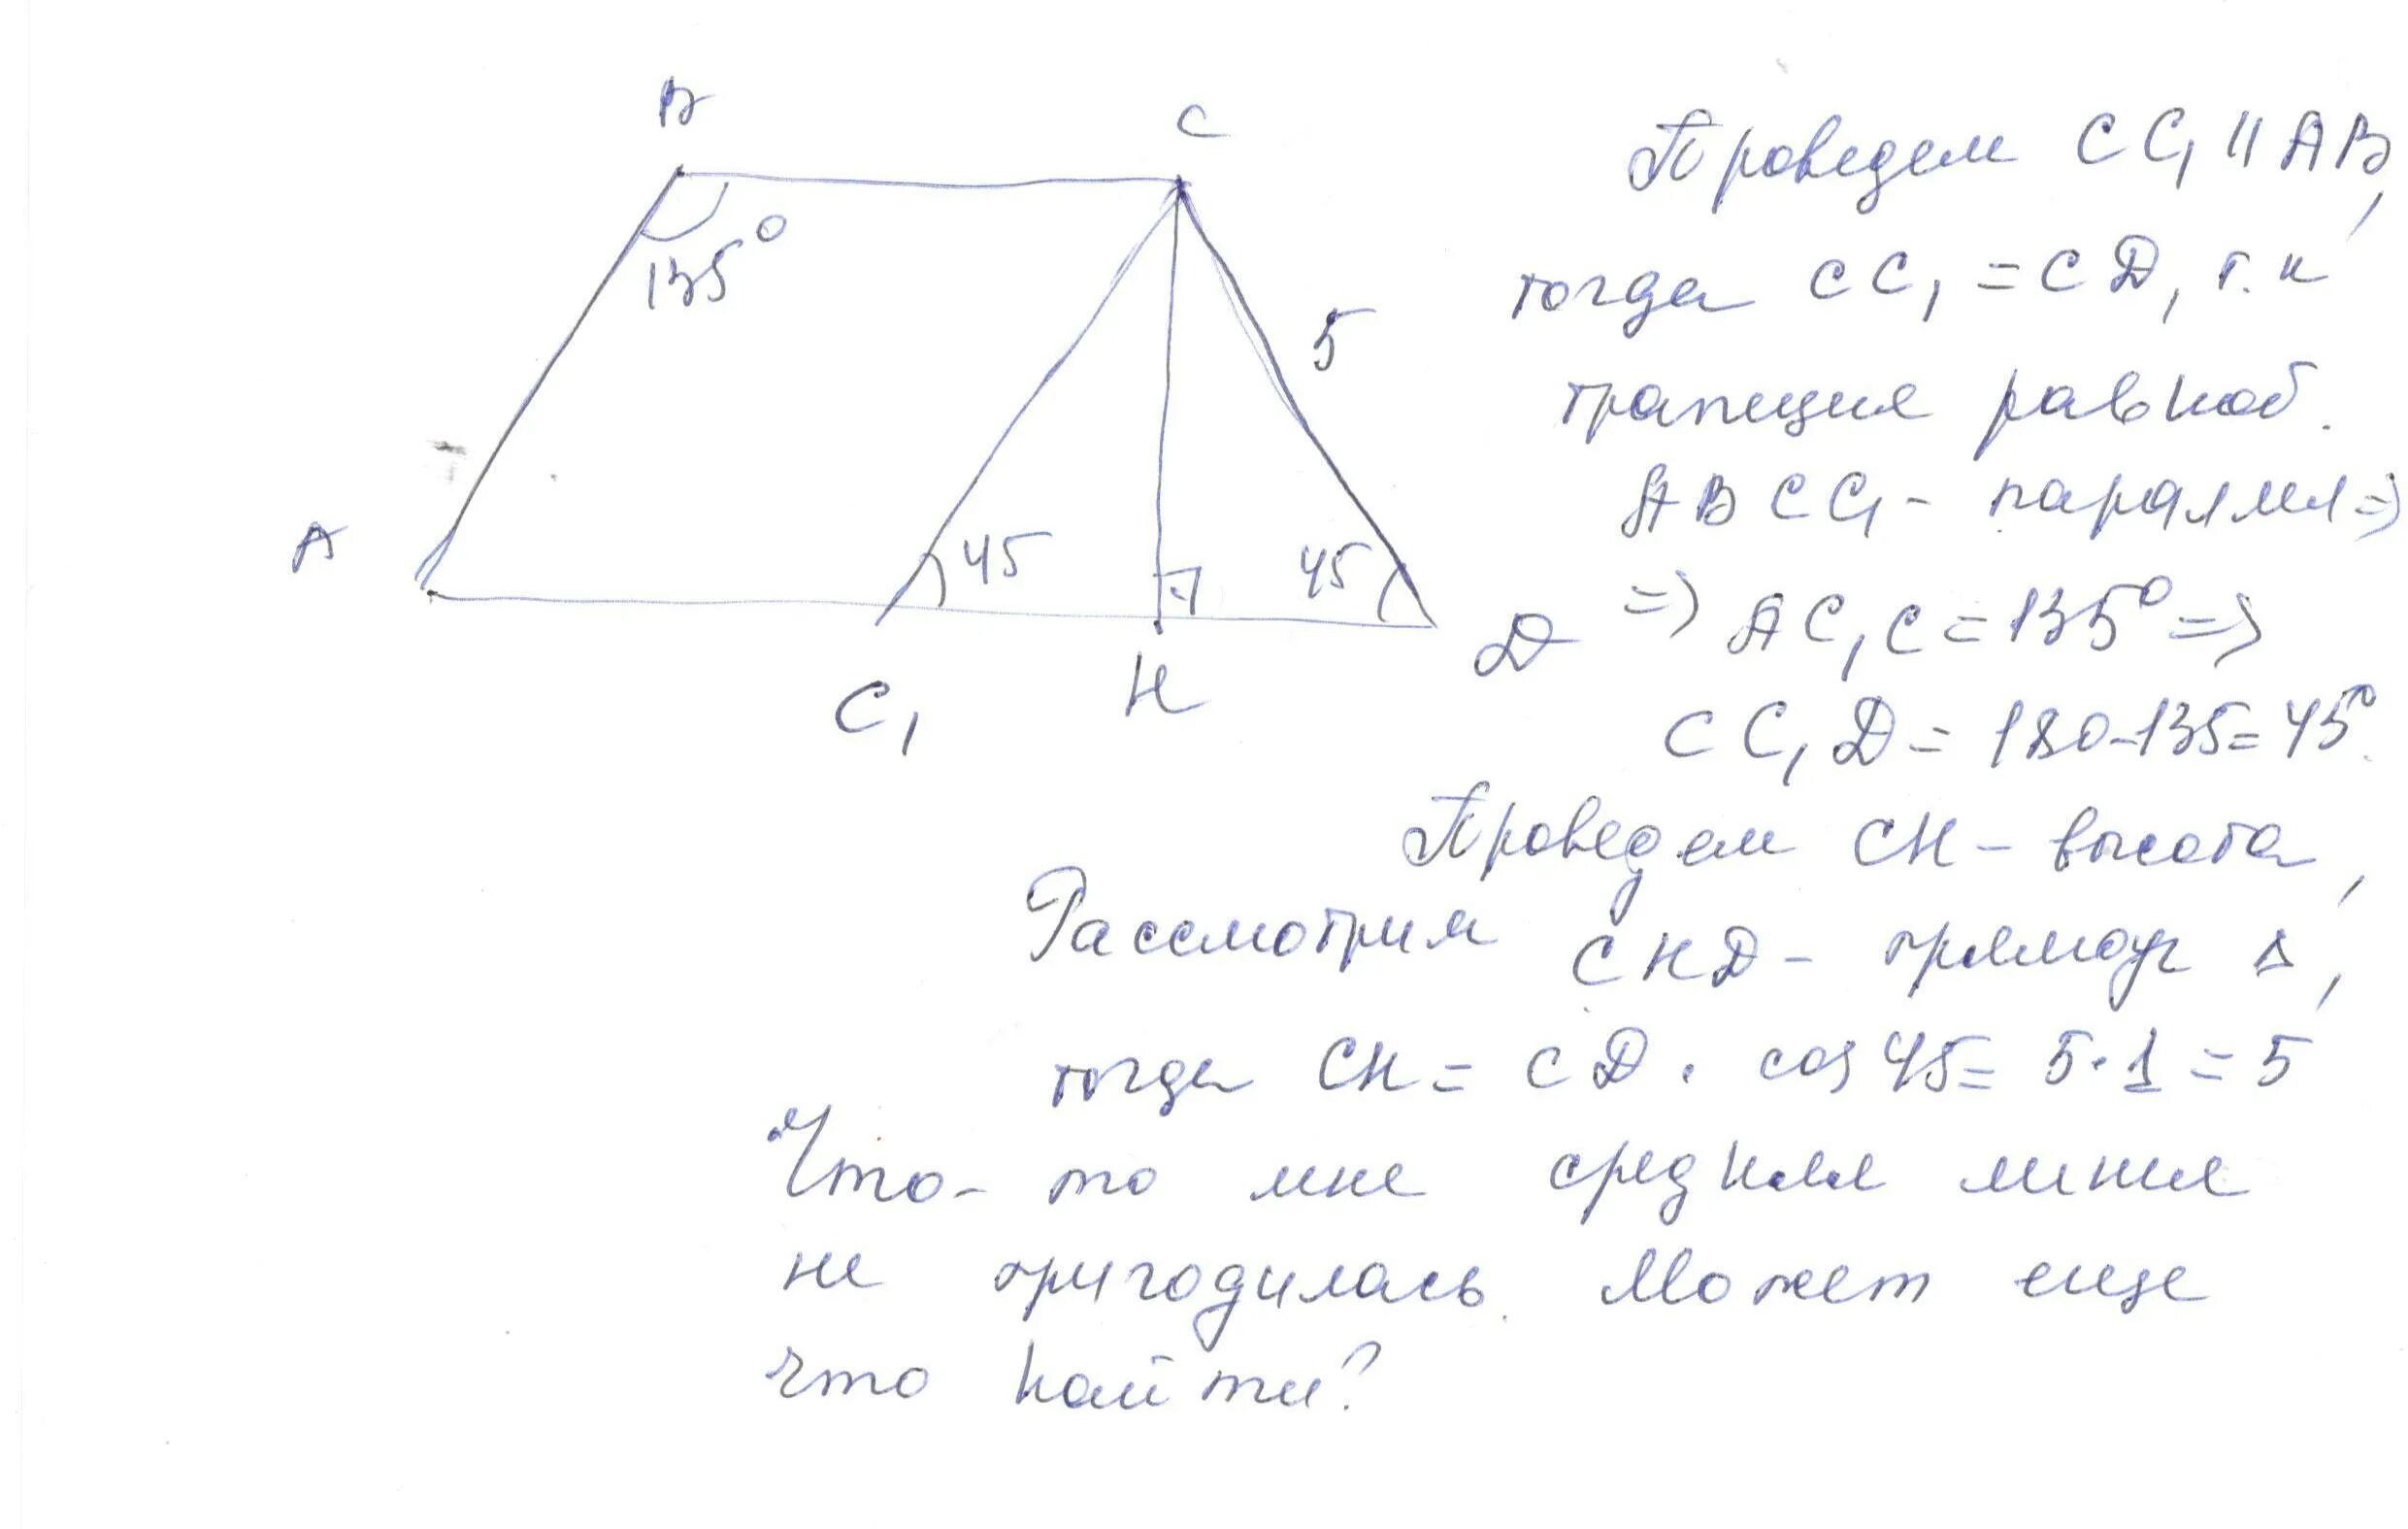 B
C
135°
5
A
45
45
D
C₁
H
Проведем CC₁ || AB,
тогда CC₁ = CD, т.к
трапеция равноб.
ABCC₁ - паралел =>
=> AC₁C = 135° =>
CC₁D = 180-135 = 45°.
Проведем CH - высота,
Рассмотрим CHD - прямоуг Δ,
тогда CH = CD · cos 45 = 5·1 = 5
Что-то мне средняя линия
не пригодилась. Может еще
что найти?